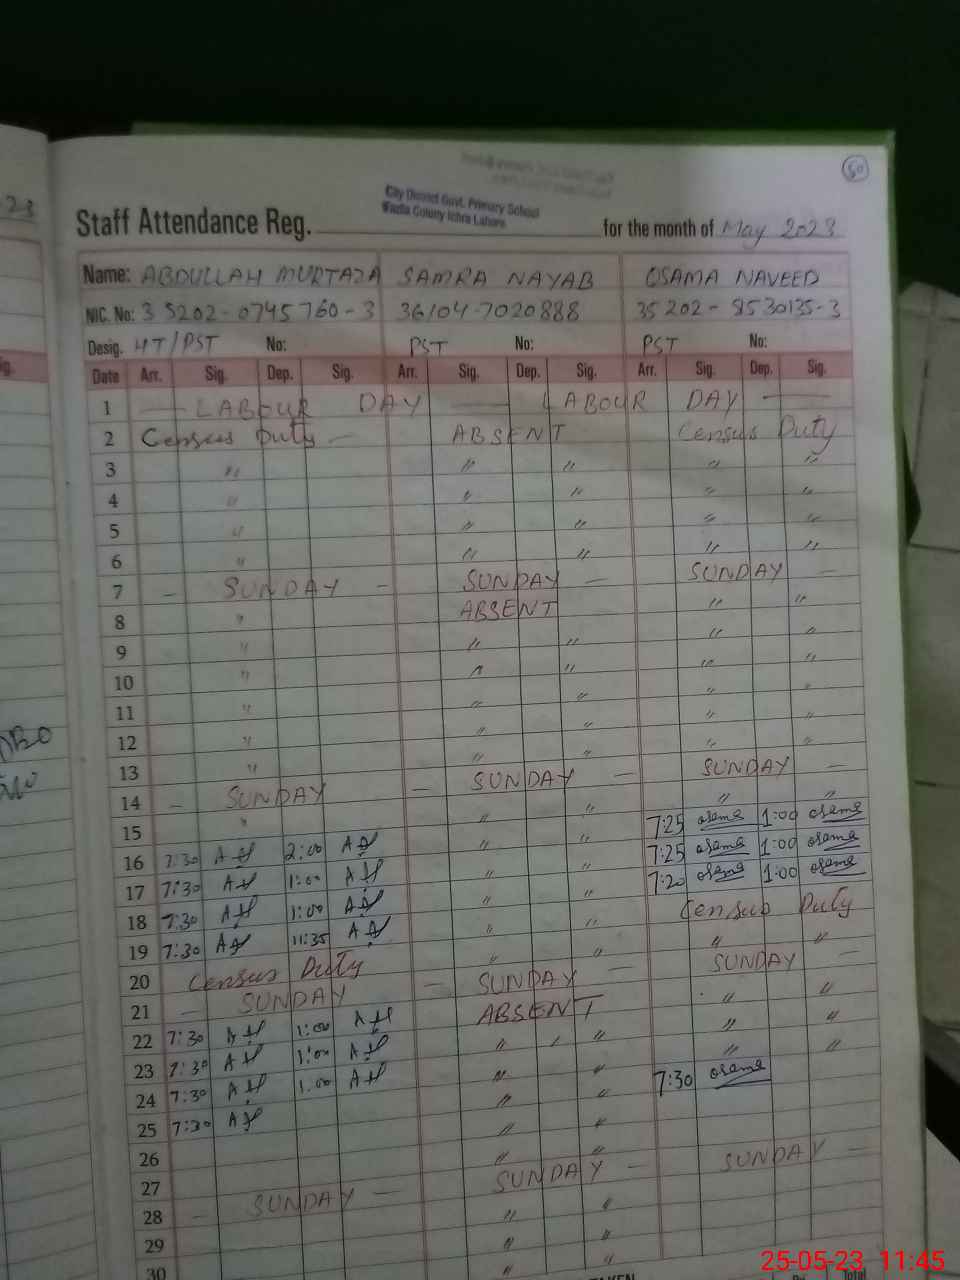 50
City District Govt. Primary School
Colony Ichra Lahore
Staff Attendance Reg. for the month of May 2023
Name: ABDULLAH MURTAZA SAMRA NAYAB OSAMA NAVEED
NIC. No: 35202-0745760-3 36104-7020888 35202-8530135-3
Desig. HT/PST No: PST No: PST No:
Date Arr. Sig. Dep. Sig. Arr. Sig. Dep. Sig. Arr. Sig. Dep. Sig.
1 — LABOUR DAY — LABOUR DAY —
2 Census Duty — ABSENT Census Duty
3 〃 〃 〃 〃 〃
4 〃 〃 〃 〃 〃
5 〃 〃 〃 〃 〃
6 〃 〃 〃 〃 〃
7 — SUNDAY — SUNDAY — SUNDAY —
8 〃 ABSENT 〃 〃
9 〃 〃 〃 〃 〃
10 〃 〃 〃 〃 〃
11 〃 〃 〃 〃 〃
12 〃 〃 〃 〃 〃
13 〃 〃 〃 〃 〃
14 — SUNDAY — SUNDAY — SUNDAY —
15 〃 〃 〃 〃 〃
16 7:30 2:00 〃 〃 7:25 osama 1:00 osama
17 7:30 1:00 〃 〃 7:25 osama 1:00 osama
18 7:30 1:00 〃 〃 7:20 osama 1:00 osama
19 7:30 11:35 〃 〃 Census Duty
20 Census Duty 〃 〃 〃 〃
21 — SUNDAY — SUNDAY — SUNDAY —
22 7:30 1:00 ABSENT 〃 〃
23 7:30 1:00 〃 〃 〃 〃
24 7:30 1:00 〃 〃 〃 〃
25 7:30 〃 〃 7:30 osama
26 〃 〃
27 〃 〃
28 — SUNDAY — SUNDAY — SUNDAY —
29 〃 〃
30 〃 〃
TAKEN Total
25-05-23 11:45